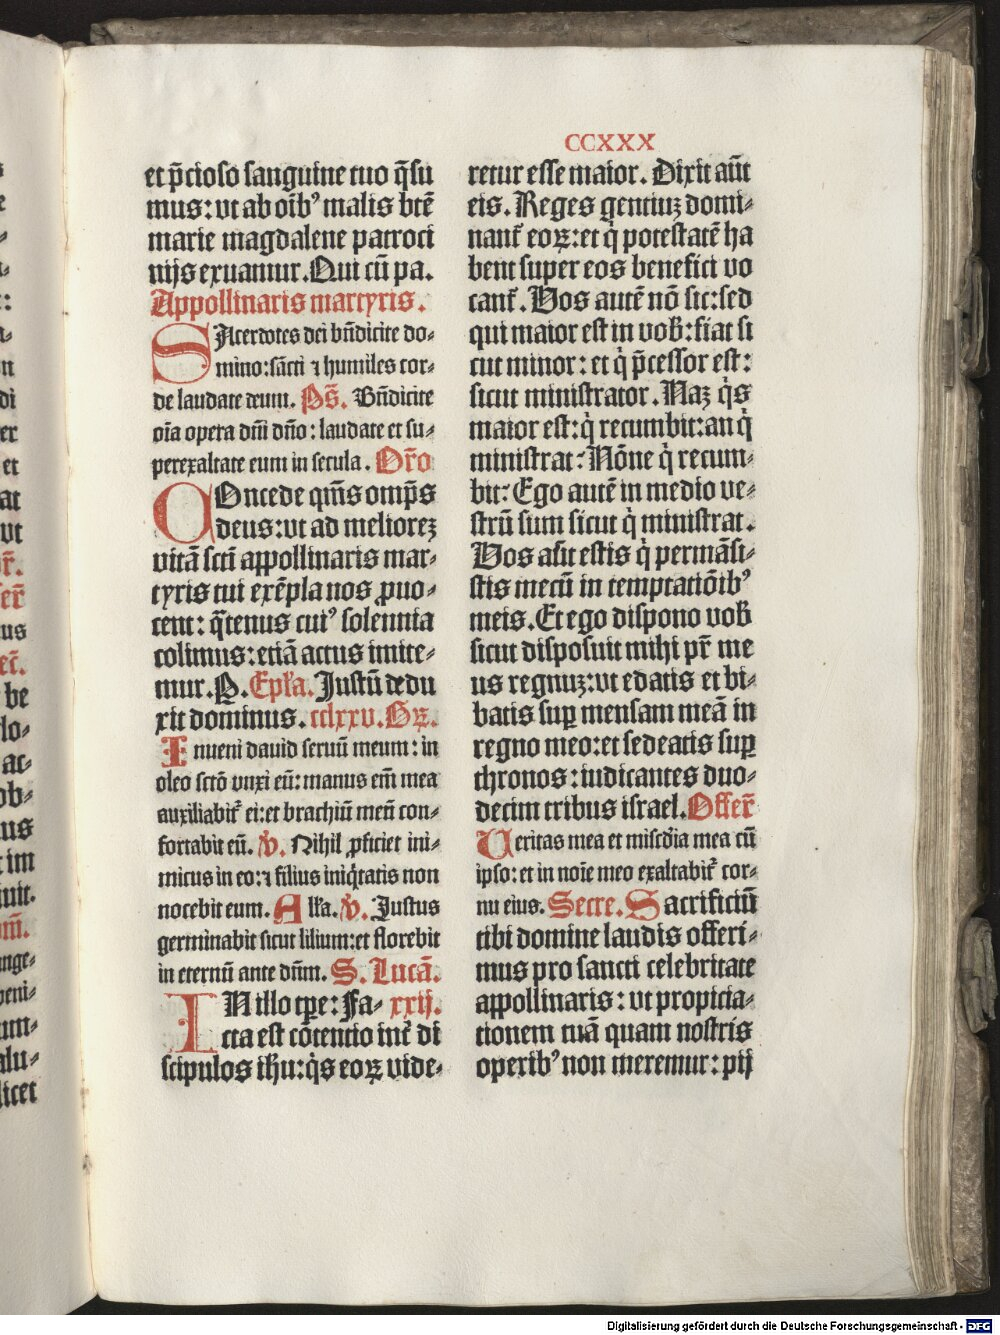 CCXXX
et p̄cioso sanguine tuo q̄su
mus: vt ab oīb⁹ malis btē
marie magdalene patroci
nijs exuamur. Qui cū pa.
Appollinaris martyris.
SAcerdotes dei bn̄dicite do⸗
mino: sācti ⁊ humiles cor⸗
de laudate deum. Ps̄. Bn̄dicite
oīa opera dn̄i dn̄o: laudate et su⸗
perexaltate eum in secula. Or̄o
COncede qm̄s omp̄s
deus: vt ad meliorez
vitā scti appollinaris mar⸗
tyris tui exēpla nos ꝓuo⸗
cent: q̄tenus cui⁹ solennia
colimus: etiā actus imite⸗
mur. P. Ep̄la. Justū dedu
xit dominus. cclxxv. Gꝝ.
Inueni dauid seruū meum: in
oleo sctō vnxi eū: manus em̄ mea
auxiliabit᷑ ei: et brachiū meū con⸗
fortabit eū. v̄. Nihil ꝓficiet ini⸗
micus in eo: ⁊ filius iniq̇tatis non
nocebit eum. All'a. v̄. Justus
germinabit sicut lilium: et florebit
in eternū ante dn̄m. S. Lucā.
IN illo tp̄e: Fa⸗ xxij.
cta est cōtentio int᷑ di
scipulos ihu: q̇s eoꝝ vide⸗
retur esse maior. Dixit aūt
eis. Reges gentiuz domi⸗
nant᷑ eoꝝ: et q̇ potestatē ha
bent super eos benefici vo
cant᷑. Vos autē nō sic: sed
qui maior est in vob̄: fiat si
cut minor: et q̇ p̄cessor est:
sicut ministrator. Naz q̇s
maior est: q̇ recumbit: an q̇
ministrat? Nōne q̇ recum⸗
bit? Ego autē in medio ve⸗
strū sum sicut q̇ ministrat.
Vos aūt estis q̇ permāsi⸗
stis mecū in temptatiōib⁹
meis. Et ego dispono vob̄
sicut disposuit mihi pr̄ me
us regnuz: vt edatis et bi⸗
batis suꝑ mensam meā in
regno meo: et sedeatis suꝑ
thronos: iudicantes duo⸗
decim tribus israel. Offer̄
Veritas mea et misc̄dia mea cū
ipso: et in noīe meo exaltabit᷑ cor⸗
nu eius. Secre. Sacrificiū
tibi domine laudis offeri⸗
mus pro sancti celebritate
appollinaris: vt propicia⸗
tionem tuā quam nostris
operib⁹ non meremur: pij